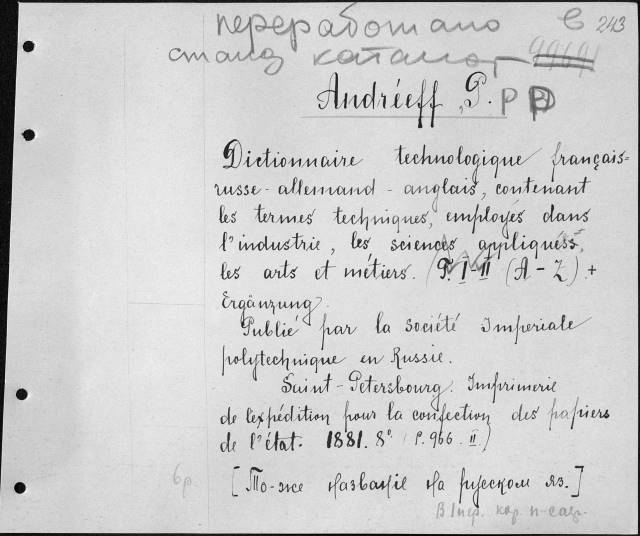 переработано в 243
станд каталог 99691
Andréeff P. PD
Dictionnaire technologique français-
russe-allemand-anglais, contenant
les termes techniques, employés dans
l'industrie, les sciences appliqueés,
les arts et métiers. P. I-II (A-Z) +
Ergänzung.
Publié par la Société Imperiale
polytechnique en Russie.
Saint-Petersbourg. Imprimerie
de l'expédition pour la confection des papiers
de l'état. 1881. 8° (P. 966. II)
[То-же названіе на русском яз.]
6р.